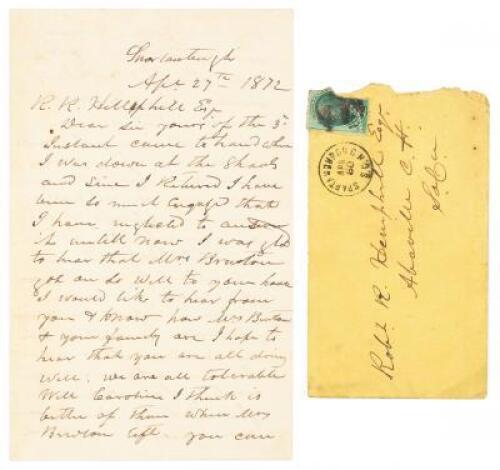 Spartanburgh
Apl 27th 1872
R. R. Hemphill Esq
Dear Sir yours of the 3d
Instant came to hand when
I was down at the Shoals
and Sine I Returned I have
been so much engage that
I have neglected to answer
untill now I was glad
to hear that Mrs Bruton
got on so well to your house
I would like to hear from
you & know how Mrs Bruton
& your family are I hope to
hear that you are all doing
well. we are all tolerable
well Caroline I think is
better of than when Mrs
Bruton left you can
SPARTANBURGH S.C.
APR
30
Robt. R. Hemphill Esq
Abbeville C. H.
So. Ca.